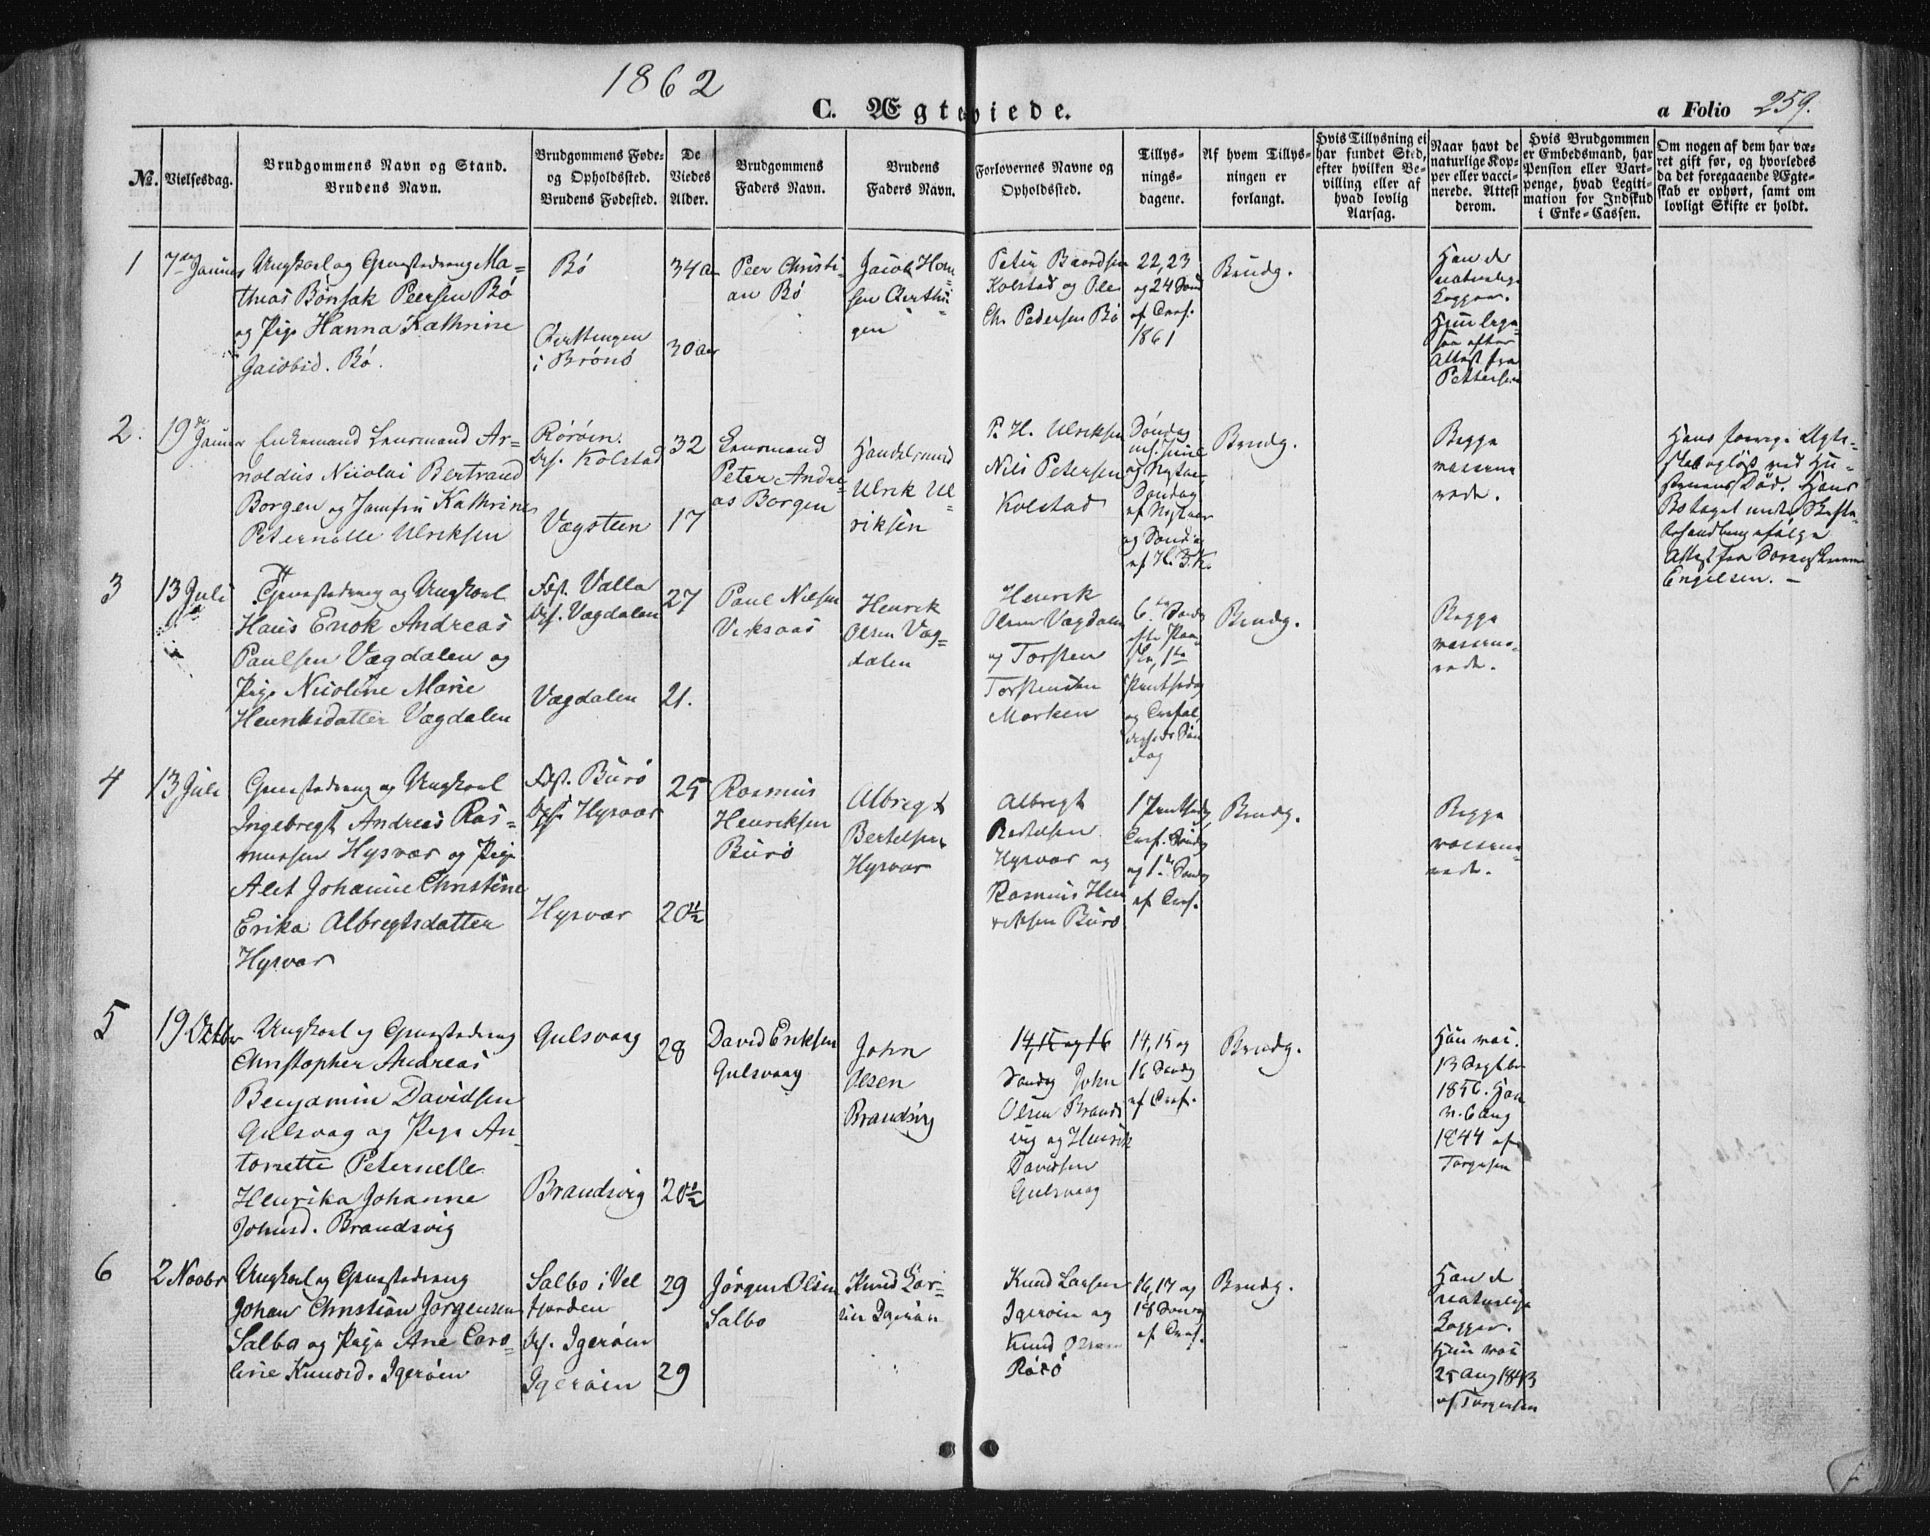 1862
C. Ægteviede.
a Folio 259.
No.
Vielsesdag.
Brudgommens Navn og Stand.
Brudens Navn.
Brudgommens Føde-
og Opholdssted.
Brudens Fødested.
De
Viedes
Alder.
Brudgommens
Faders Navn.
Brudens
Faders Navn.
Forlovernes Navne og
Opholdssted.
Tillys-
nings-
dagene.
Af hvem Tillys-
ningen er
forlangt.
Hvis Tillysning ei
har fundet Sted,
efter hvilken Be-
villing eller af
hvad lovlig
Aarsag.
Naar havt de
naturlige Kop-
per eller vacci-
nerede. Attest
derom.
Hvis Brudgommen
er Embedsmand, har
Pension eller Vart-
penge, hvad Legiti-
mation for Indskud
i Enke-Cassen.
Om nogen af dem har væ-
ret gift før, og hvorledes
da det foregaaende Ægte-
skab er ophørt, samt om
lovligt Skifte er holdt.
1
7de Januar
Ungkarl og Gaardsdreng Ma-
thias Bönsak Peersen Bö
og Pige Hanna Kathrine
Jacobsd. Bö.
Bö
i Brönö
34 aar
30 aar
Peer Christi-
an Bö
Jacob Han-
sen
gen
Peter Baardsen
Kolstad og Ole
Chr. Pedersen Bö
22, 23
og 24 Sönd
af Tref.
1861
Brudg.
Han de
naturlige
Kopper.
Hun lige-
saa efter
Attest fra
Pettersen
2.
19de Januar
Enkemand Lensmand Ar-
noldus Nicolai Bertrand
Borgen og Jomfru Kathrine
Peternelle Ulriksen
Röröen.
Ops. Kolstad
Vægsteen
32
17
Lensmand
Peter Andre-
as Borgen
Handelsmand
Ulrik Ul-
riksen
P. H. Ulriksen
Nils Petersen
Kolstad
Söndag
ml. Juul
og Nytaar
Söndag
ef. Nytaar
og Söndag
ef. H. 3 K.
Brudg.
Begge
vaccine-
rede.
Hans forrige Ægte-
skab oplöst ved Hu-
struens Död. Hans
Bo taget under Skifte-
behandling ifölge
Attest fra Sorenskriver
Engelsen. —
3
13 Juli
Gaardsdreng og Ungkarl
Hans Enok Andreas
Paulsen Vægdalen og
Pige Nicoline Marie
Henriksdatter Vægdalen
Fst. Valla
Ops. Vægdalen
Vægdalen
27
21.
Paul Nilsen
Henrik
Olsen Væg-
dalen
Henrik
Olsen Vægdalen
og Torsten
Torstensen
Marken
6. Sönda
efter Paa-
ske, 1ste
Pintsedag
og Trefol-
digheds Sön
dag
Brudg.
Begge
vaccine-
rede.
4
13 Juli
Gaardsdreng og Ungkarl
Ingebregt Andreas Ras-
mussen Hysvær og Pige
Alet Johanne Christine
Erika Albregtsdatter
Hysvær
Fdst. Burö
Ops. Hysvær
Hysvær
25
20½
Rasmus
Henriksen
Burö
Albregt
Bertelsen
Hysvær
Albregt
Bertelsen
Hysvær og
Rasmus Hen
riksen Burö
1 Pintsedag
Tref. Söndag
og 1ste Söndag
ef. Tref.
Brudg.
Begge
vaccine-
rede.
5
19 Octbr
Ungkarl og Gaardsdreng
Christopher Andreas
Benjamin Davidsen
Gulsvag og Pige An-
tonette Peternelle
Henrika Johanne
Johnsd. Brandsvig
Gulsvaag
Brandsvig
28
20½
David Eriksen
Gulsvaag
John
Olsen
Brandsvig
14, 15 og 16
Söndag John
Olsen Brands
vig og Henrik
Davidsen
Gulsvaag
14, 15 og
16 Söndag
ef Tref.
Brudg.
Hun vac.
13 Septbr
1856. Han
v. 6 Aug
1844 af
Torgersen
6
2 Novbr
Ungkarl og Gaardsdreng
Johan Christian Jørgensen
Salbo og Pige Ane Caro-
line Knudsd. Igeröen
Salbo i Vel
fjorden
Ops. Igeröen
Igeröen
29
29
Jörgen Olsen
Salbo
Knud Lar-
sen Igeröen
Knud Larsen
Igeröen og
Knud Olsen
Rörö
16, 17 og
18 Söndag
ef. Tref.
Brudg.
Han de
naturlige
Kopper.
Hun vac
25 Aug 1843
af Torgersen